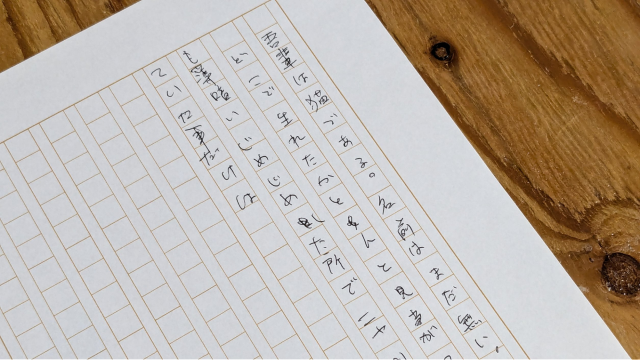 吾輩は猫である。名前はまだ無い、
どこで生れたかとんと見当が
も薄暗いじめじめした所でニャ
ていた事だけは